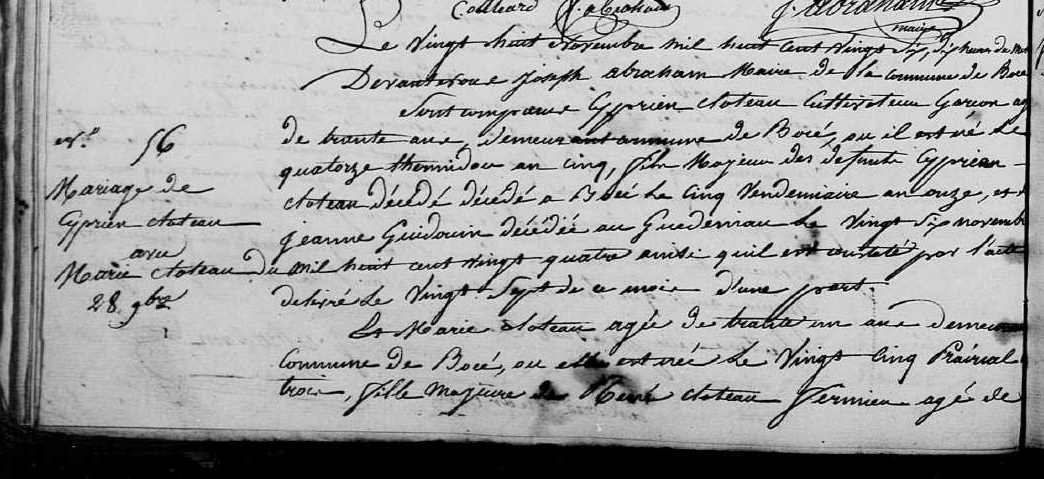 Coulleard J. abraham J. abraham
maire
Le Vingt huit Novembre mil huit cent vingt six, dix heures du mat
Devant nous Joseph abraham Maire de la commune de Bocé
Sont comparus Cyprien cloteau Cultivateur Garcon ag
de trante ans, demeurant commune de Bocé, ou il est né le
quatorze thermidor an cinq, fils Majeur des defunts Cyprien
cloteau décédé décédé a Bocé le cinq Vendemiaire an onze, et
jeanne Guidouin décédée au Guedeniau le Vingt six novembre
mil huit cent vingt quatre ainsi quil est constaté par l'acte
delivré le Vingt Sept de ce mois d'une part.
Et Marie cloteau agée de trante un ans demeurant
Commune de Bocé, ou elle est née le Vingt cinq Prairial
trois, fille majeure de René cloteau fermier agé de
n.° 56
Mariage de
Cyprien cloteau
avec
Marie cloteau du
28 9bre